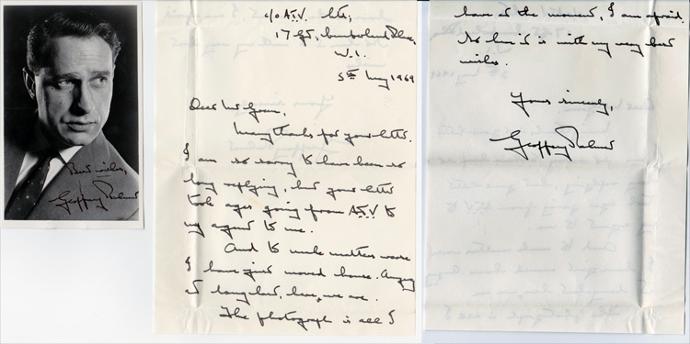 Best wishes,
Geoffrey Palmer
c/o A.T.V. Ltd,
17 Gt. Cumberland Place,
W.1.
5th May 1969
Dear Mr
Many thanks for your letter.
I am so sorry to have been so
long replying, but your letter
took ages going from A.T.V. to
my agent to me.
And to make matters worse
I have just moved house. Anyway
at long last, here we are.
The photograph is all I
have at the moment, I am afraid.
So here it is with my very best
wishes.
Yours sincerely,
Geoffrey Palmer